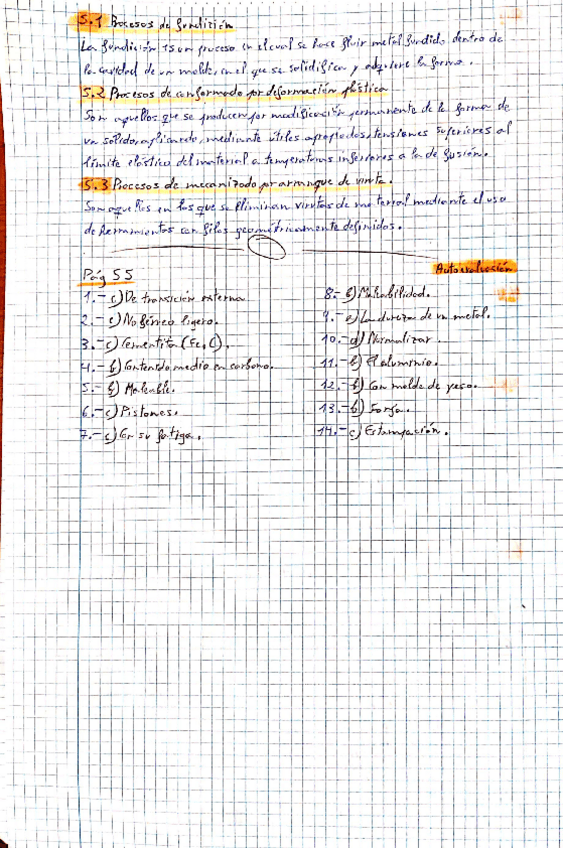 5.1 Procesos de fundición
La fundición es un proceso en el cual se hace fluir metal fundido dentro de
la cavidad de un molde, en el que se solidifica y adquiere la forma.
5.2 Procesos de conformado por deformación plástica
Son aquellos que se producen por modificación permanente de la forma de
un sólido, aplicando, mediante útiles apropiados, tensiones superiores al
límite elástico del material a temperaturas inferiores a la de fusión.
5.3 Procesos de mecanizado por arranque de viruta.
Son aquellos en los que se eliminan virutas de material mediante el uso
de herramientas con filos geométricamente definidos.
Autoevaluación
Pág 55
1.- c) De transición externa
2.- c) No férreo ligero.
3.- c) Cementita (Fe3C).
4.- b) Contenido medio en carbono.
5.- b) Maleable.
6.- c) Pistones.
7.- c) En su fatiga.
8.- b) Maleabilidad.
9.- a) La dureza de un metal.
10.- d) Normalizar.
11.- b) El aluminio.
12.- b) Con molde de yeso.
13.- b) Forja.
14.- c) Estampación.